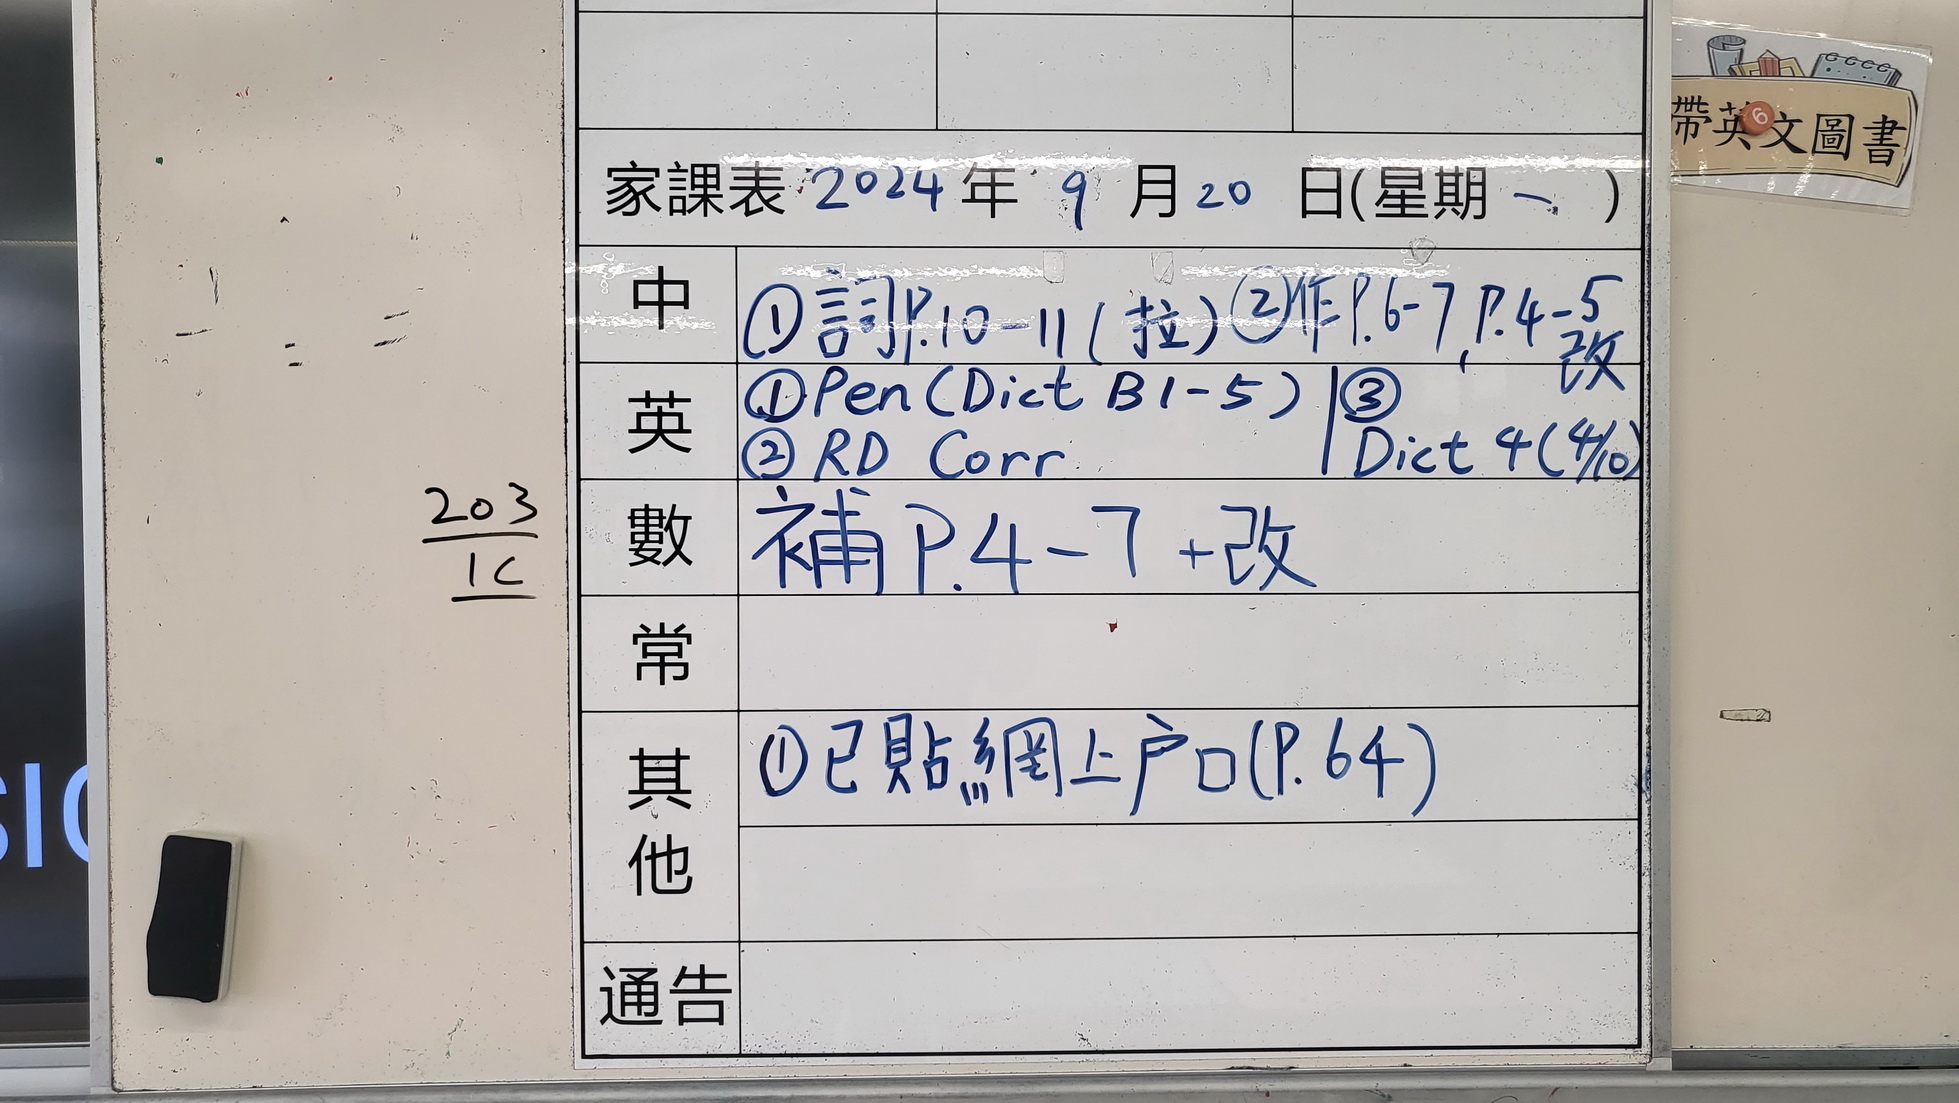 帶英文圖書
6
家課表 2024年 9月20日(星期一)
中
①詞P.10-11(拉)②作P.6-7,P.4-5改
英
①Pen(Dict B1-5)
②RD Corr
③
Dict 4(4/10)
203
1C
數
補P.4-7+改
常
其他
①已貼網上户口(P.64)
通告